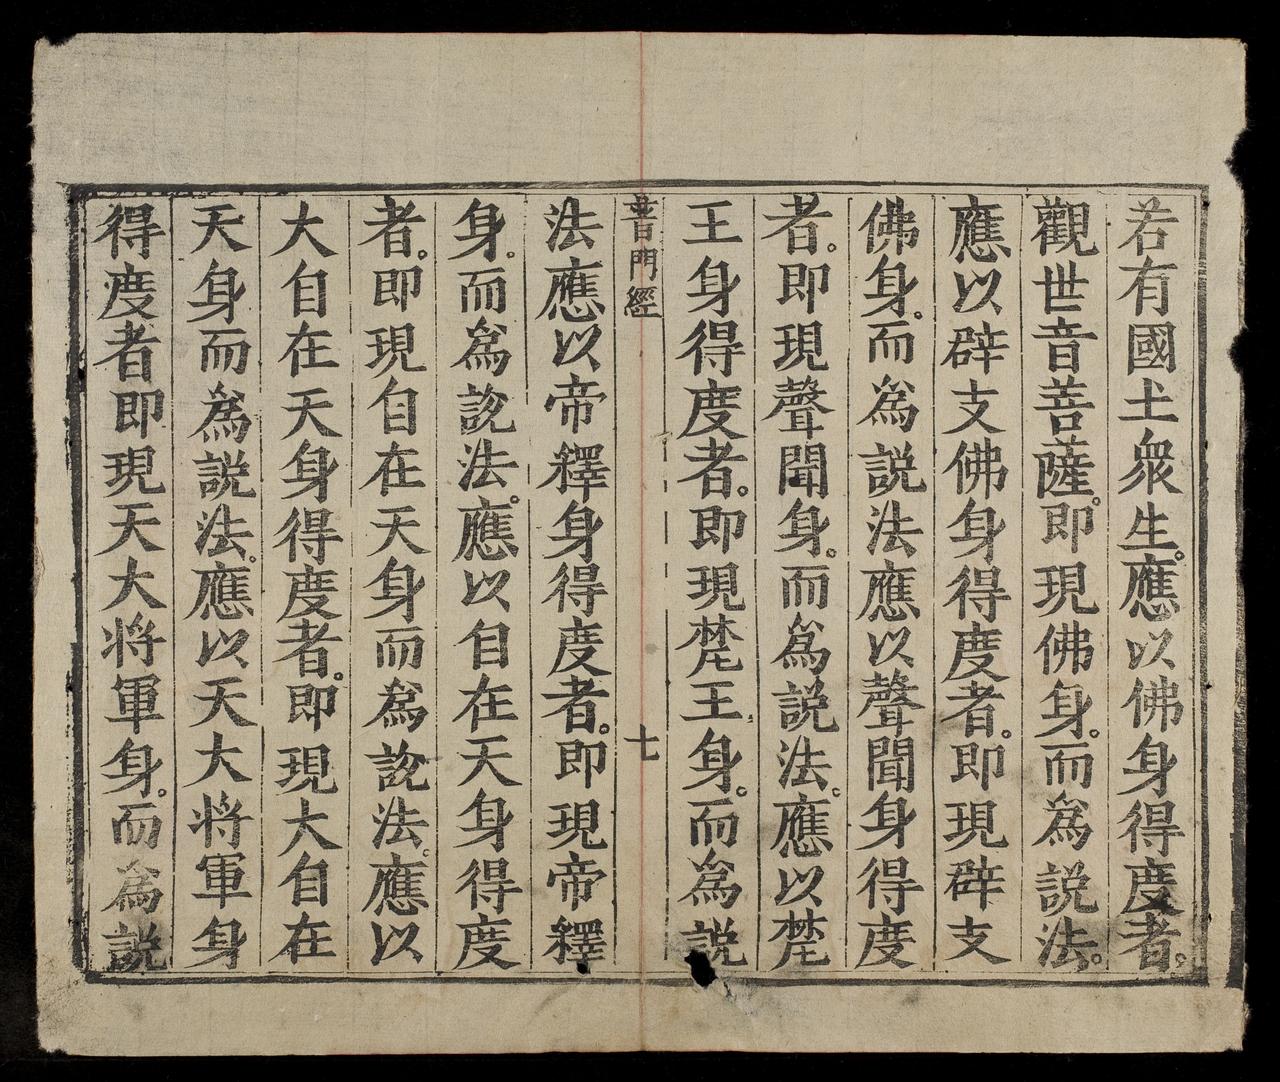 若有國土衆生。應以佛身得度者。
觀世音菩薩。即現佛身。而為說法。
應以辟支佛身得度者。即現辟支
佛身。而為說法應以聲聞身得度
者。即現聲聞身。而為說法。應以梵
王身得度者。即現梵王身。而為說
普門經
七
法應以帝釋身得度者。即現帝釋
身。而為說法。應以自在天身得度
者。即現自在天身而為說法。應以
大自在天身得度者。即現大自在
天身而為說法。應以天大将軍身
得度者即現天大将軍身。而為說